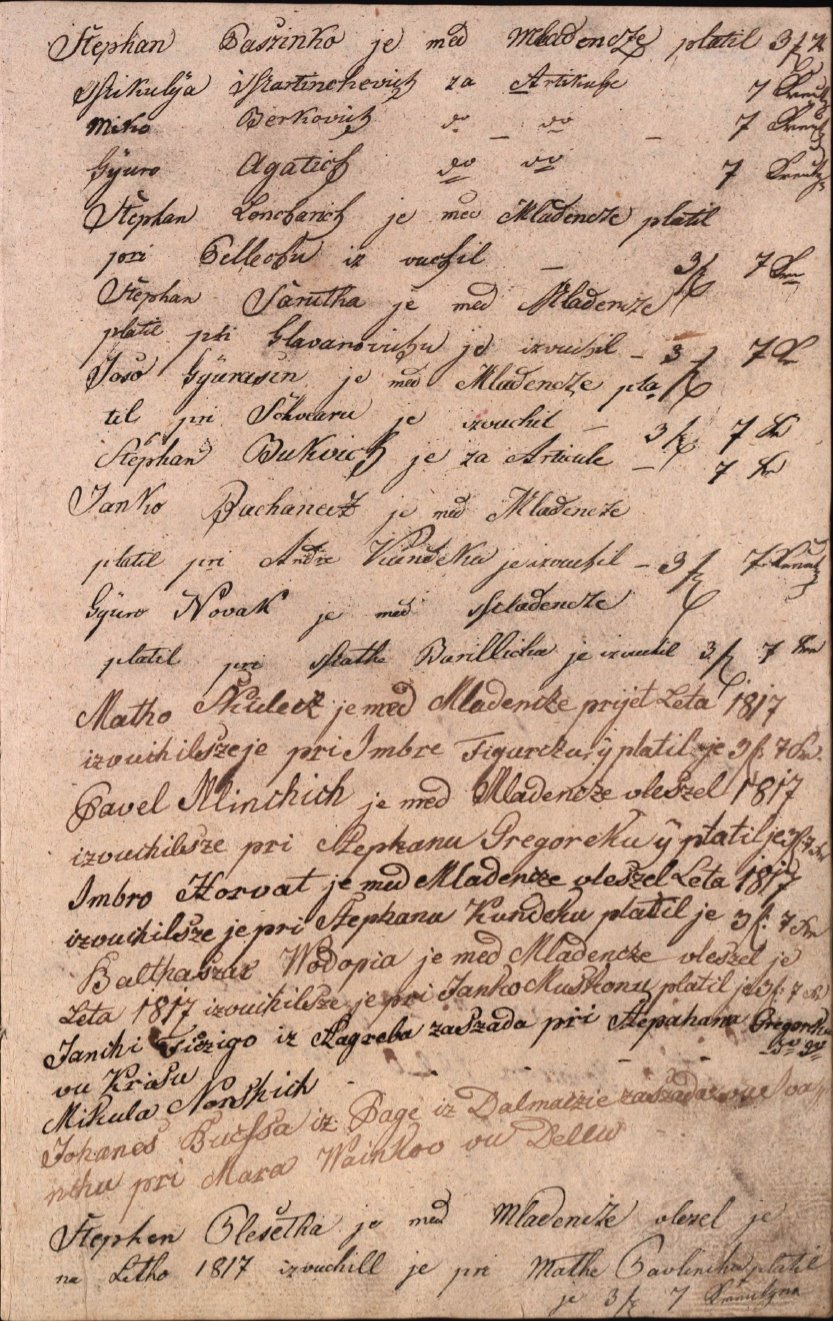 Stephan Baszinko je med Mladencze platil 3 f
Mikulya Martinchevich za Artikule 7 Kreucz
Miko Berkovich do — do — 7 Kreucz
Gyuro Agatich do do 7 Kreucz
Stephan Loncharich je med Mladencze platil
pri je vuchil — 3 f 7 Kr
Stephan Sarutha je med Mladencze
platil pri Glavanovichu je izvuchil — 3 f 7 Kr
Joso Gyurasin je med Mladencze pla
til pri je izvuchil — 3 f 7 Kr
Stephan Bukvich je za Articule — 7 Kr
Janko Buchanecz je med Mladencze
platil pri Andre Kundeku je izvuchil — 3 f 7
Gyuro Novak je med Mladencze
platil pri Mathe Barillichu je izvuchil 3 f 7 Kr
Matho Skulecz je med Mladencze prijet Leta 1817
izvuchilsze je pri Imbre Figurcku, ÿ platil je 3 f. 7 Kr.
Pavel Mlinchich je med Mladencze vleszel 1817
izvuchilsze pri Stephanu Gregoreku ÿ platil je 3 f 7 Kr
Imbro Horvat je med Mladencze vleszel Leta 1817
izvuchilsze je pri Stephanu Kundeku platil je 3 f. 7 Kr
Balthaszar Wodopia je med Mladencze vleszel je
Leta 1817 izvuchilsze je pri Janko Muskonu platil je 3 f. 7 Kr
Janchi Ficzigo iz Zagreba zaszada pri Stepahanu Gregoreku
vu Krasu — — — do do
Mikula Norskich
Johanes iz Page iz Dalmaczie zaszada vu Iva
nchu pri Mara Wainkoo vu Dellu
Stephen Olesetka je med Mladencze vlezel je
na Letho 1817 izvuchill je pri Mathe Pavlinchu platil
je 3 f 7